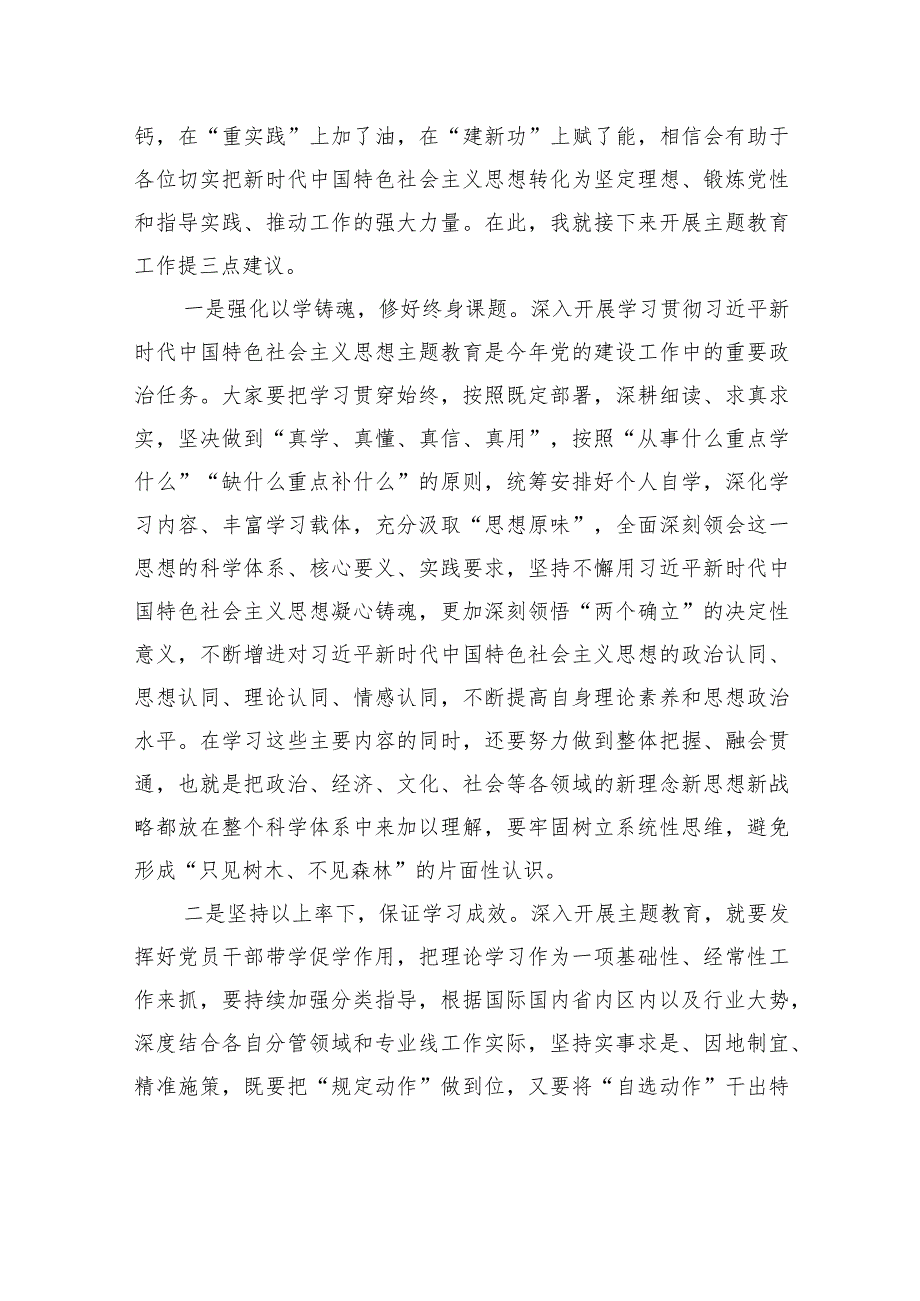 钙，在“重实践”上加了油，在“建新功”上赋了能，相信会有助于
各位切实把新时代中国特色社会主义思想转化为坚定理想、锻炼党性
和指导实践、推动工作的强大力量。在此，我就接下来开展主题教育
工作提三点建议。
一是强化以学铸魂，修好终身课题。深入开展学习贯彻习近平新
时代中国特色社会主义思想主题教育是今年党的建设工作中的重要政
治任务。大家要把学习贯穿始终，按照既定部署，深耕细读、求真求
实，坚决做到“真学、真懂、真信、真用”，按照“从事什么重点学
什么”“缺什么重点补什么”的原则，统筹安排好个人自学，深化学
习内容、丰富学习载体，充分汲取“思想原味”，全面深刻领会这一
思想的科学体系、核心要义、实践要求，坚持不懈用习近平新时代中
国特色社会主义思想凝心铸魂，更加深刻领悟“两个确立”的决定性
意义，不断增进对习近平新时代中国特色社会主义思想的政治认同、
思想认同、理论认同、情感认同，不断提高自身理论素养和思想政治
水平。在学习这些主要内容的同时，还要努力做到整体把握、融会贯
通，也就是把政治、经济、文化、社会等各领域的新理念新思想新战
略都放在整个科学体系中来加以理解，要牢固树立系统性思维，避免
形成“只见树木、不见森林”的片面性认识。
二是坚持以上率下，保证学习成效。深入开展主题教育，就要发
挥好党员干部带学促学作用，把理论学习作为一项基础性、经常性工
作来抓，要持续加强分类指导，根据国际国内省内区内以及行业大势，
深度结合各自分管领域和专业线工作实际，坚持实事求是、因地制宜、
精准施策，既要把“规定动作”做到位，又要将“自选动作”干出特